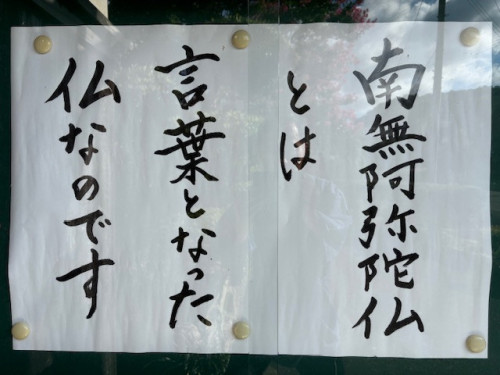 南無阿弥陀仏
とは
言葉となった
仏なのです